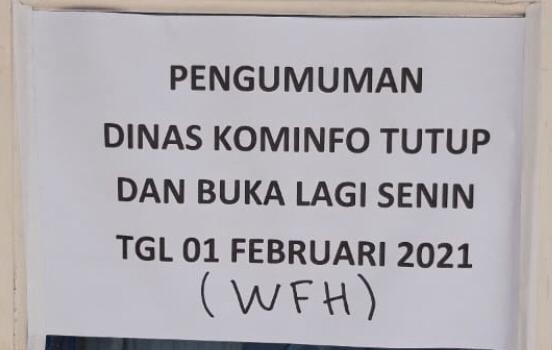 PENGUMUMAN
DINAS KOMINFO TUTUP
DAN BUKA LAGI SENIN
TGL 01 FEBRUARI 2021
(WFH)